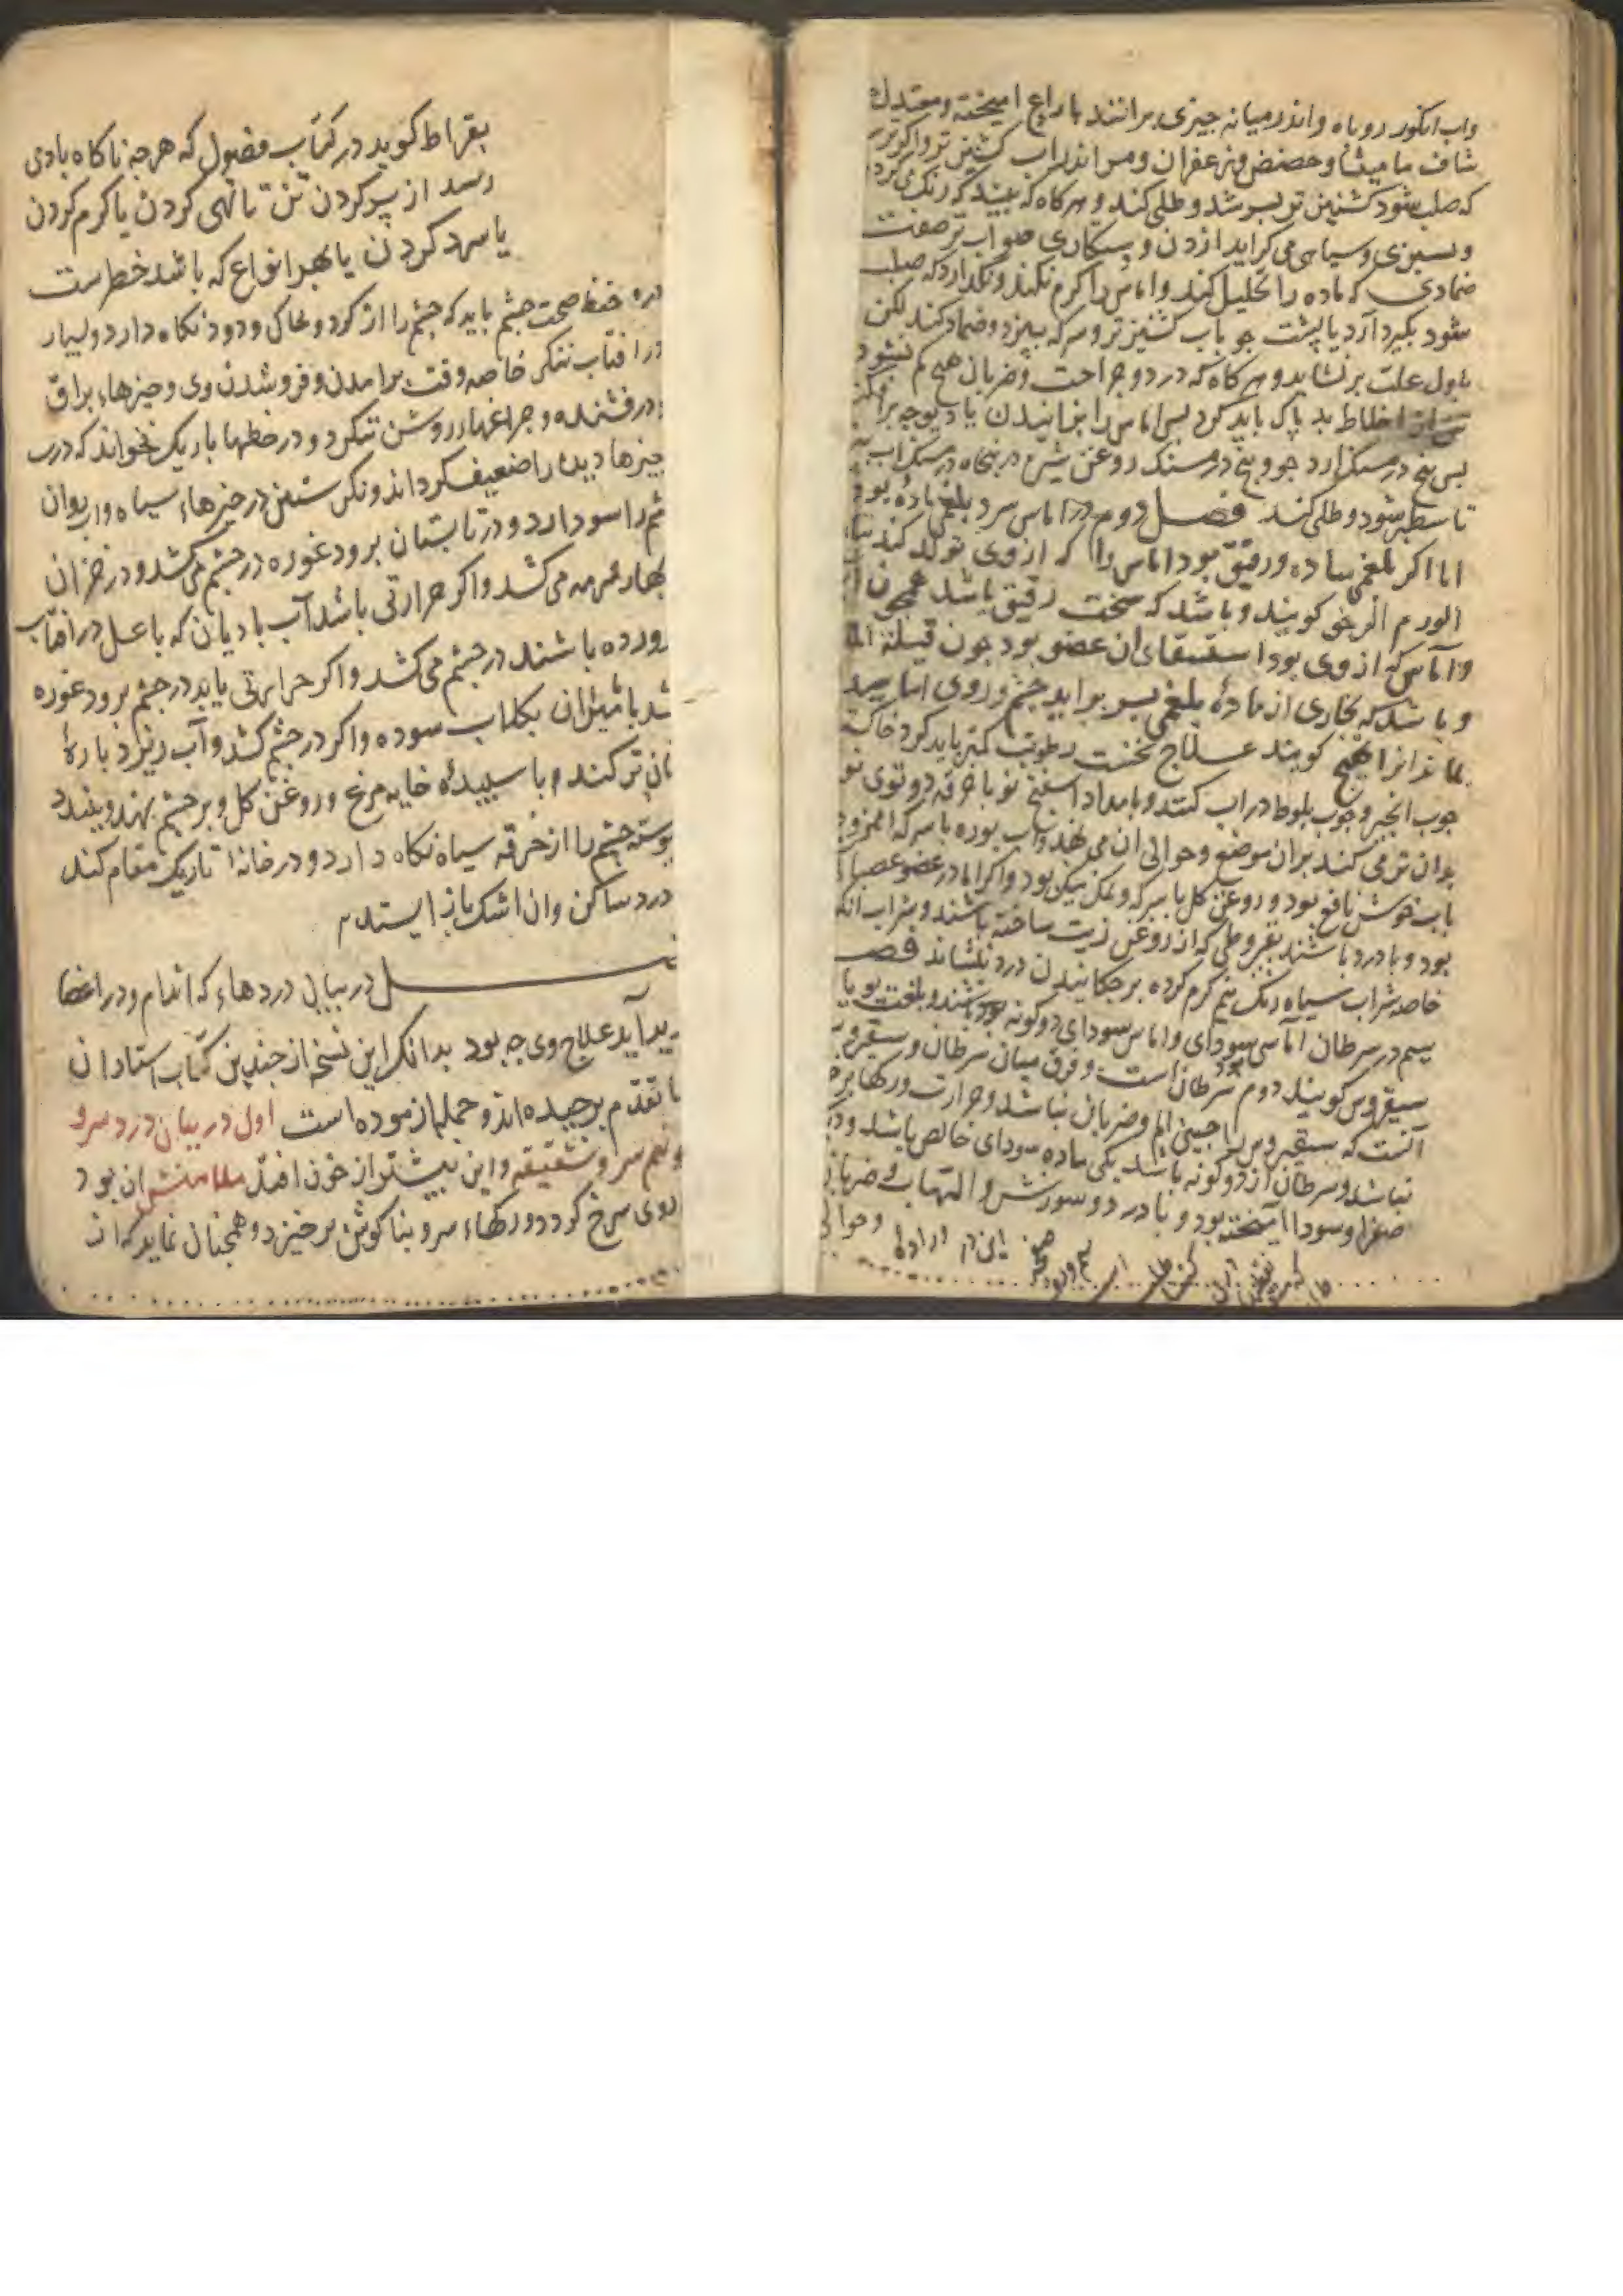 واب انکور روباه و اندر میانه چیزی برانند با راع امیخته و معتدل
شاف مامیثا و حضض و زعفران و مر اندراب کشنیز تر و اکر بر
که صلب شود کشنیز تر بسر شد و طلی کند و هر کاه که ببیند که رنک می کرد
و بسبزی و سیاهی می کراید ازدن و بیکاری صواب تر صفت
ضمادی که ماده را تحلیل کند و اماس را کرم نکند و نکذارد که صلب
شود بکیرد آرد با پشت جو باب کشنیز تر و سرکه بپزد و ضماد کند لکن
باول علت بر نشاید و هر کاه که درد و جراحت و ضربان هیچ کم نشود
تن از اخلاط بد پاک باید کرد پس اماس را بزانیدن یا دیوچه برافکند
پس پنج درمسنک ارد جو و پنج درمسنک روغن شیرج در پنجاه درمسنک اب
تا سطبر شود و طلی کند فصل دوم در اماس سرد بلغمی ماده بود
اما اکر بلغمی ساده و رقیق بود اماس را که از وی تولد کند
الورم الرخو کویند و باشد که سخت رقیق باشد همچون
و اماس که از وی بود استسقای ان عضو بود چون قیلة الما
و باشد که بخاری از ماده بلغمی بسر براید چشم و روی اماسید
بماند انرا تهبج کویند علاج نخست رطوبت کمتر باید کرد خاکستر
چوب انجیر و چوب بلوط در اب کنند و بامداد اسفنج نو یا خرقه دو توی نو
بدان تر می کند بران موضع و حوالی ان می نهد و اب بوره با سرکه امیزد
باب خوش نافع بود و روغن کل با سرکه و نمک نیک بود و اکر اما در عضو عصبا
بود و با درد باشند بقیروطی که از روغن زیت ساخته باشند و شراب انکور
خاصه شراب سیاه رنک نیم کرم کرده برچکانیدن درد بنشاند فصـ
سیم در سرطان اماس سودای و اماس سودای دو کونه بود باشند و بلغت یونا
سیقروس کویند دوم سرطان است و فرق میان سرطان و سقیروس
انست که سیقیروس را جنین الم و ضربان نباشد و حرارت و رکها برخ
نباشد و سرطان از دو کونه باشد یکی ماده سودای خالص باشد و دیک
صفرا و سودا امیخته بود و با درد و سوزش و التهاب و ضربان
و حوالی
بقراط کوید در کتاب فصول که هر چه ناکاه بادی
رسد از پر کردن تن تا تهی کردن یا کرم کردن
یا سرد کردن یا بهر انواع که باشد خطرست
در حفظ صحت چشم باید که چشم را از کرد و خاک و دود نکاه دارد و بسیار
در افتاب ننکرد خاصه وقت برامدن و فرو شدن وی و چیزهاء براق
و درفشنده و چراغهاء روشن ننکرد و در خطها باریک نخواند که درب
چیزها دیده را ضعیف کرداند و نکرستن در چیزهاء سیاه و اب روان
شم را سود دارد و در تابستان برود غوره در چشم می کشد و در خزان
بهار سرمه می کشد و اکر حرارتی باشد آب بادیان که با عسل در افتاب
رورده باشند در چشم می کشد و اکر حرارتی یابد در چشم برود غوره
شد یا میزان بکلاب سوده و اکر در چشم کشد و آب ریزد بارۀ
نان تر کند و با سپیدۀ خایه مرغ و روغن کل و بر چشم نهد و ببندد
پوسته چشم را از خرقه سیاه نکاه دارد و در خانۀ تاریک مقام کند
درد ساکن و ان اشک باز ایستد م
ـل در بیان دردهاء که اندام و در اعضا
یدید آید علاج وی چه بود بدانک این نسخه از جندین کتاب استادان
ما تقدم برچیده اند و جمله ازموده است اول در بیان درد سر و
و نیم سر و شقیقه و این بیشتر از خون افتد علامتش ان بود
روی سرخ کردد و رکهاء سر و بناکوش برخیزد و همچنان نماید که از